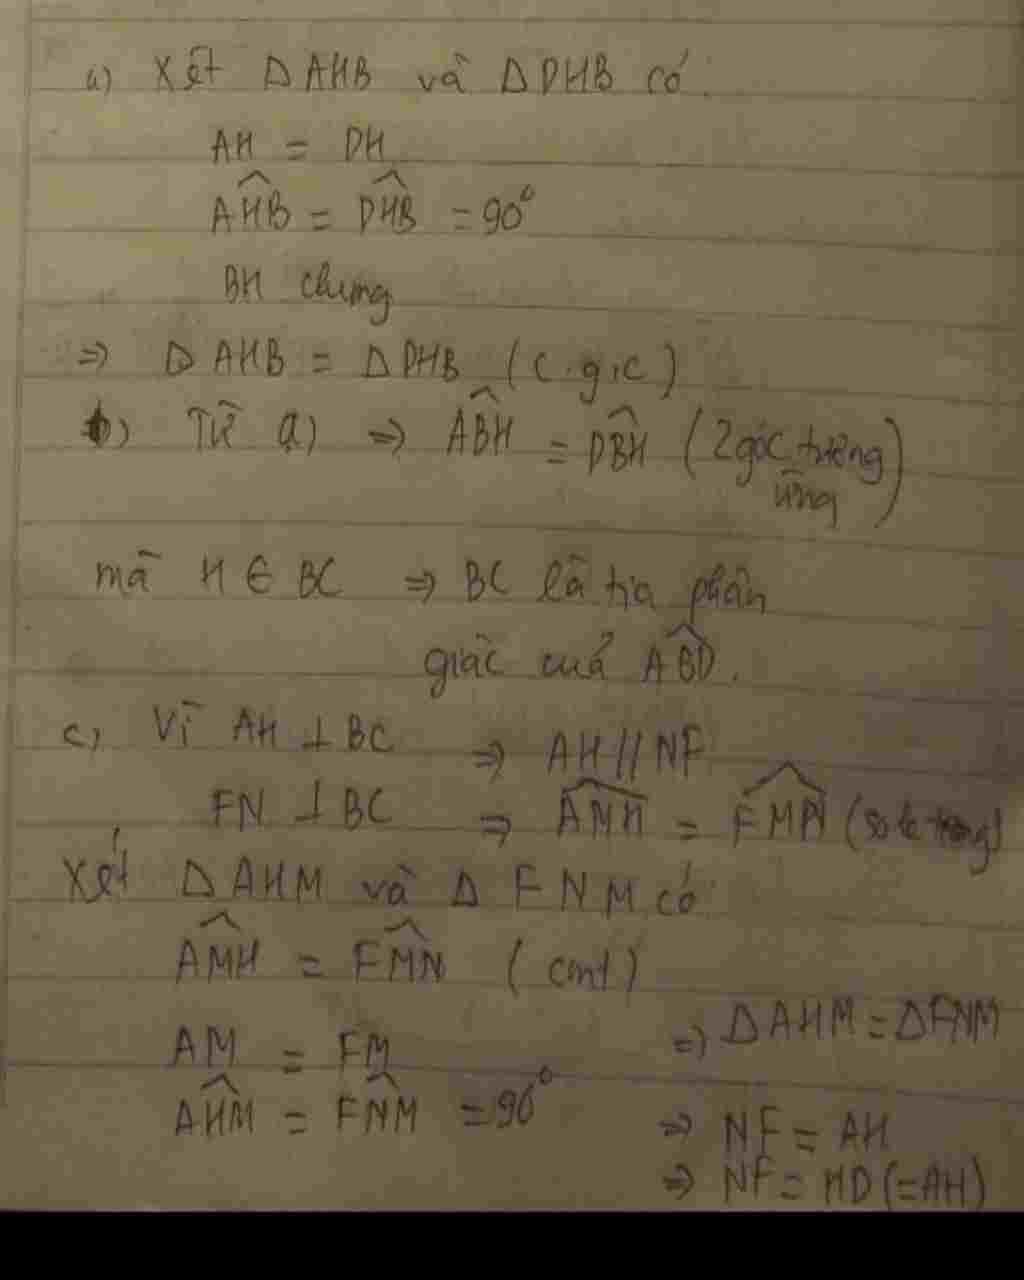 a) Xét Δ AHB và Δ DHB có
AH = DH
AHB = DHB = 90°
BH chung
=> Δ AHB = Δ DHB (c.g.c)
b) Từ a) => ABH = DBH (2 góc tương
ứng)
mà H ∈ BC => BC là tia phân
giác của ABD.
c, Vì AH ⊥ BC => AH // NF
FN ⊥ BC => AMH = FMN (so le trong)
Xét Δ AHM và Δ FNM có
AMH = FMN (cmt)
AM = FM => ΔAHM = ΔFNM
AHM = FNM = 90° => NF = AH
=> NF = HD (=AH)